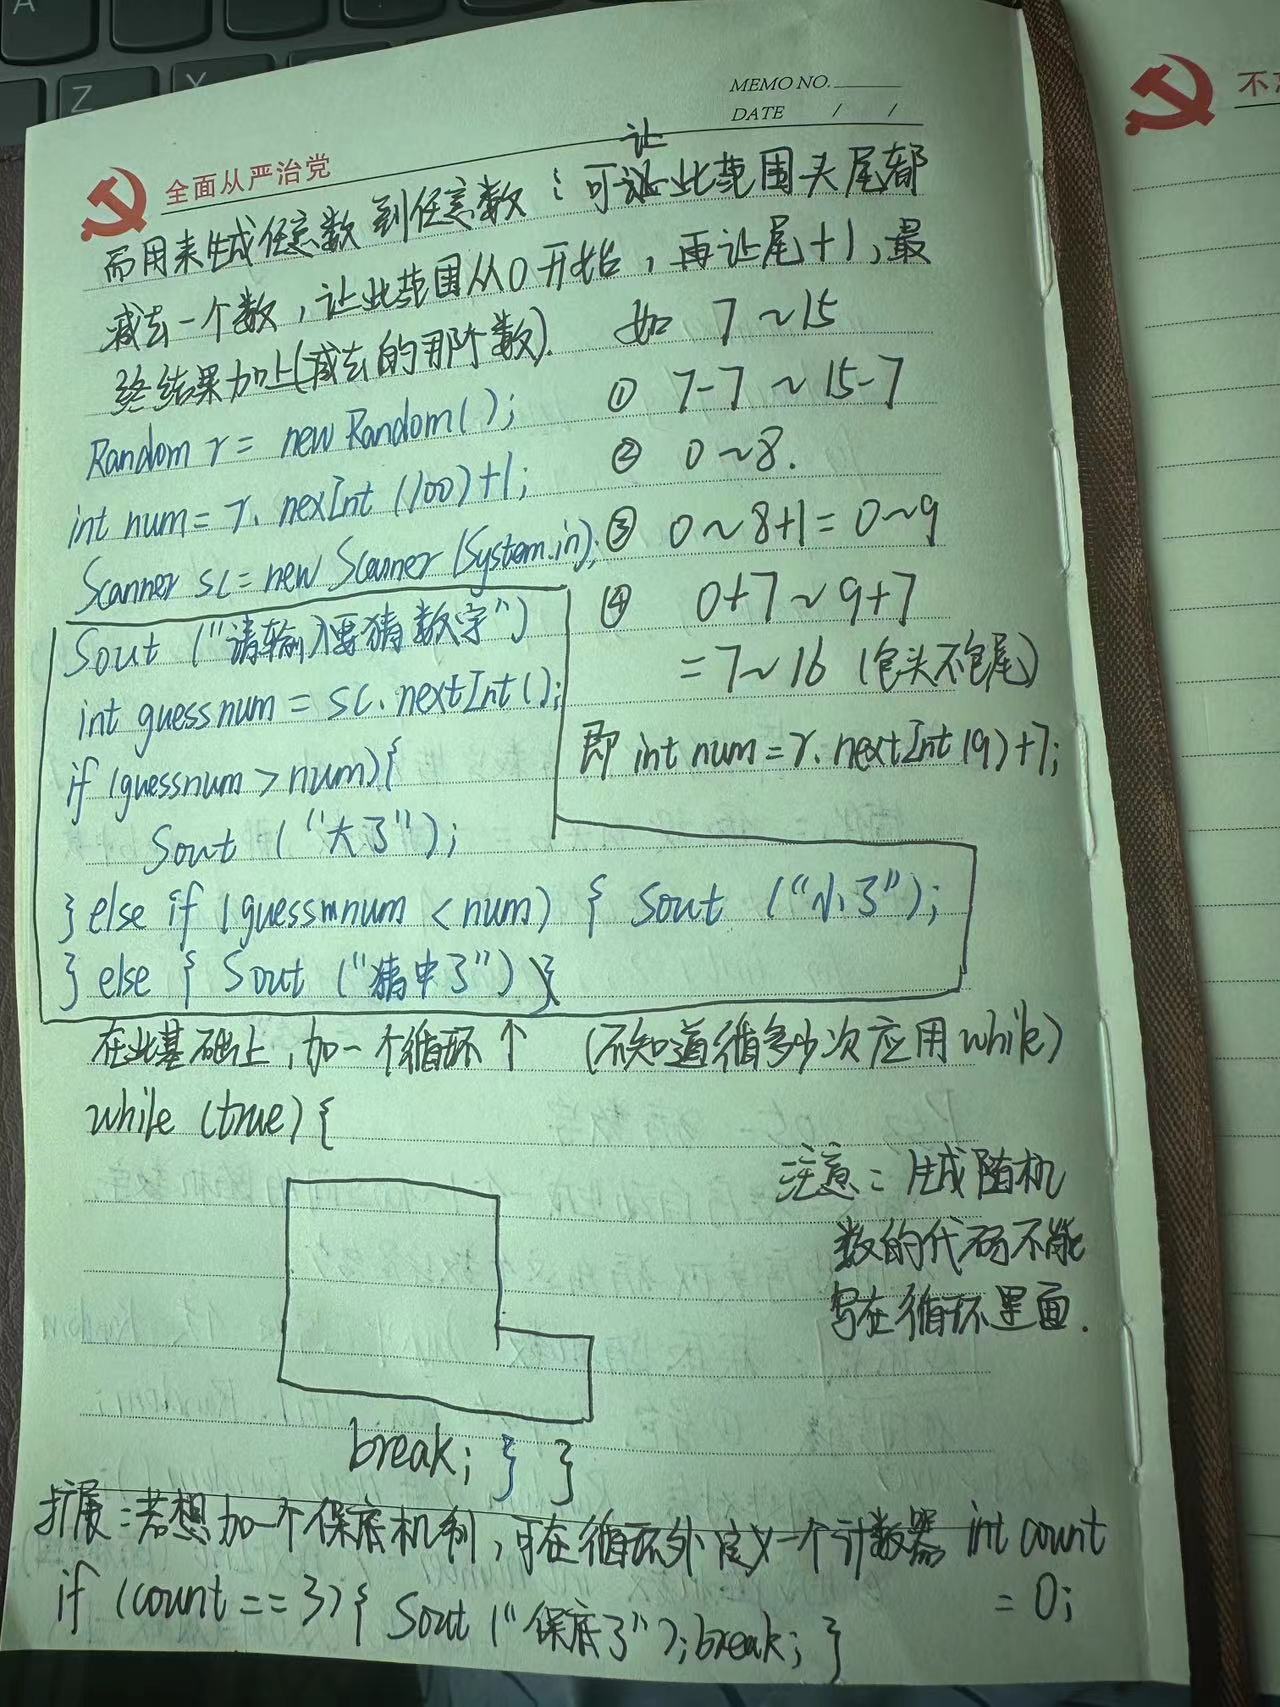 MEMO NO.
DATE / /
全面从严治党
不
让
而用来生成任意数到任意数：可让此范围头尾都
减去一个数，让此范围从0开始，再让尾+1，最
终结果加上(减去的那个数).
如 7~15
① 7-7~15-7
② 0~8.
③ 0~8+1=0~9
④ 0+7~9+7
=7~16 (包头不包尾)
即 int num=r.nextInt(9)+7;
Random r = new Random();
int num=r.nexInt(100)+1;
Scanner sc=new Scanner(System.in);
Sout ("请输入要猜数字")
int guessnum = sc.nextInt();
if (guessnum > num){
Sout ("大了");
} else if (guessmnum < num) { Sout ("小了");
} else { Sout ("猜中了") }
在此基础上,加一个循环↑ (不知道循多少次应用while)
while (true) {
注意：生成随机
数的代码不能
写在循环里面.
break; } }
扩展：若想加一个保底机制,可在循环外定义一个计数器 int count
= 0;
if (count == 3){ Sout ("保底了");break; }
A
Z
X